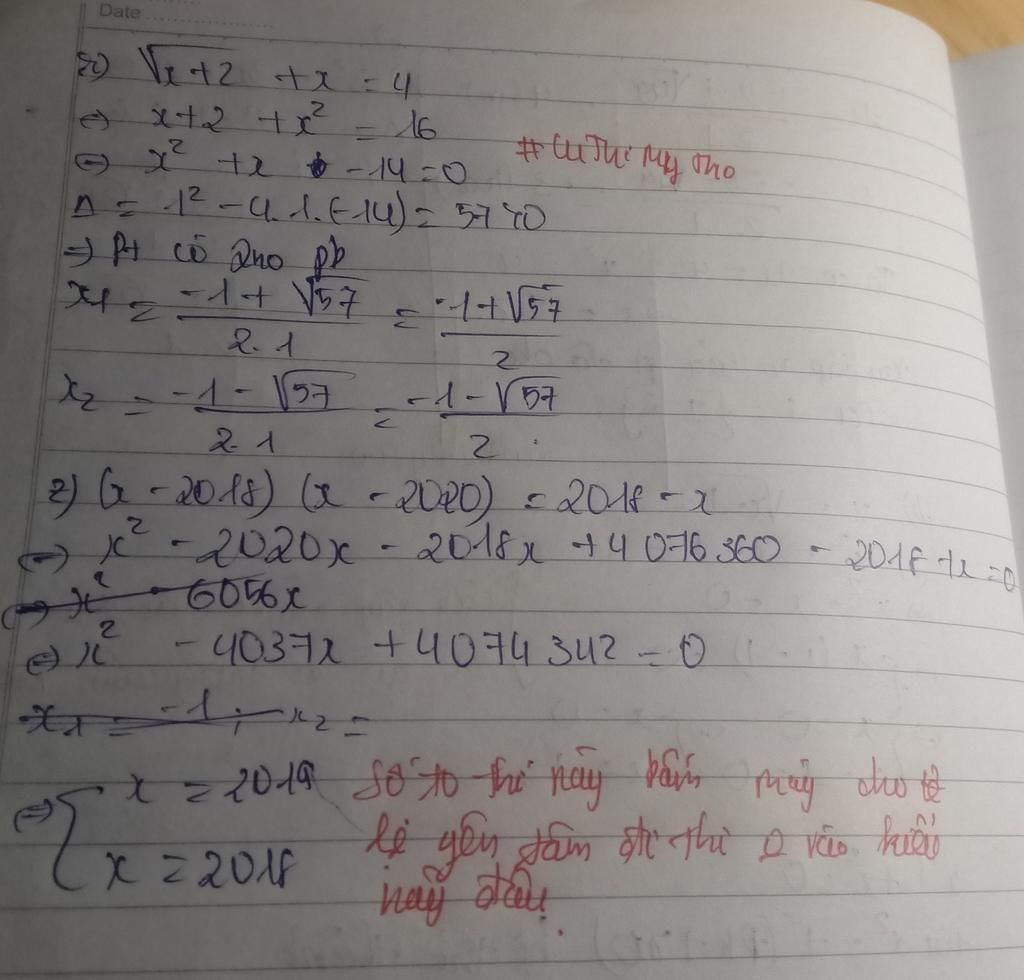 Date
x) √x+2 + x = 4
⇔ x+2 + x² = 16
⇔ x² + x - 14 = 0
# Cu Thi My Tho
Δ = 1² - 4.1.(-14) = 57 > 0
⇒ Pt có 2no pb
x1 = (-1 + √57)/(2.1) = (-1 + √57)/2
x2 = (-1 - √57)/(2.1) = (-1 - √57)/2
z) (x - 2018) (x - 2020) = 2018 - x
⇔ x² - 2020x - 2018x + 4076360 - 2018 + x = 0
⇔ x² - 6056x
⇔ x² - 4037x + 4074342 = 0
x1 = -1 ; x2 =
⇔ { x = 2019
x = 2018
Số to thế này bấm máy cho
lẹ yên tâm đi thi vào kiểu
này đâu.